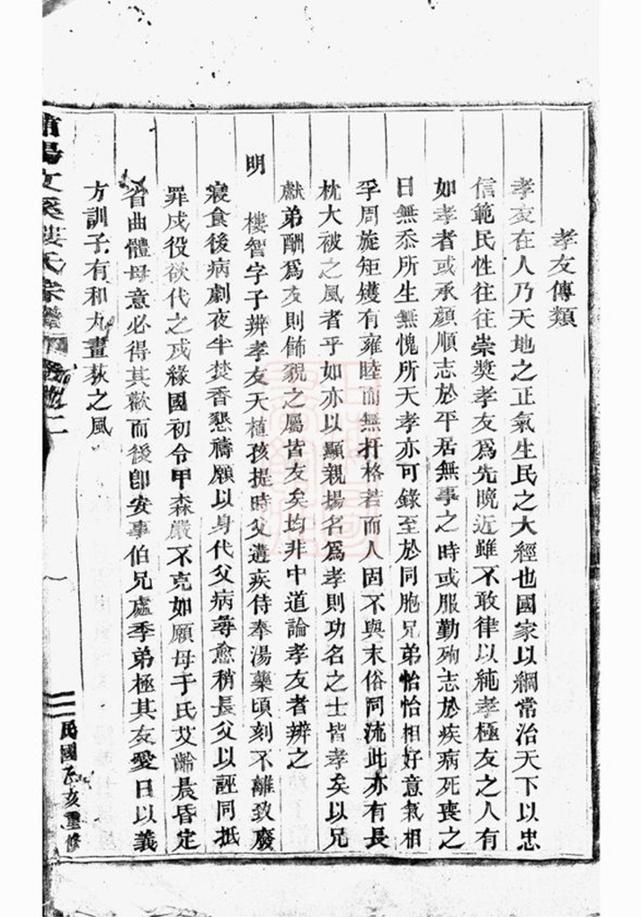 孝友傳類
孝友在人乃天地之正氣生民之大經也國家以綱常治天下以忠
信範民性往往崇奬孝友爲先晚近雖不敢律以純孝極友之人有
如孝者或承顏順志於平居無事之時或服勤殉志於疾病死喪之
日無忝所生無愧所天孝亦可錄至於同胞兄弟怡怡相好意氣相
孚周旋矩矱有雍睦而無扞格若而人固不與末俗同流此亦有長
枕大被之風者乎如亦以顯親揚名爲孝則功名之士皆孝矣以兄
獻弟酬爲友則飾貌之屬皆友矣均非中道論孝友者辨之
明
樓智字子辨孝友天植孩提時父遘疾侍奉湯藥頃刻不離致廢
寢食後病劇夜半焚香懇禱願以身代父病尋愈稍長父以誣同抵
罪戍役欲代之戍緣國初令甲森嚴不克如願母于氏艾齡晨昏定
省曲體母意必得其歡而後卽安事伯兄處季弟極其友愛日以義
方訓子有和丸畫荻之風
浦陽文溪樓氏宗譜
二
一
民國乙亥重修